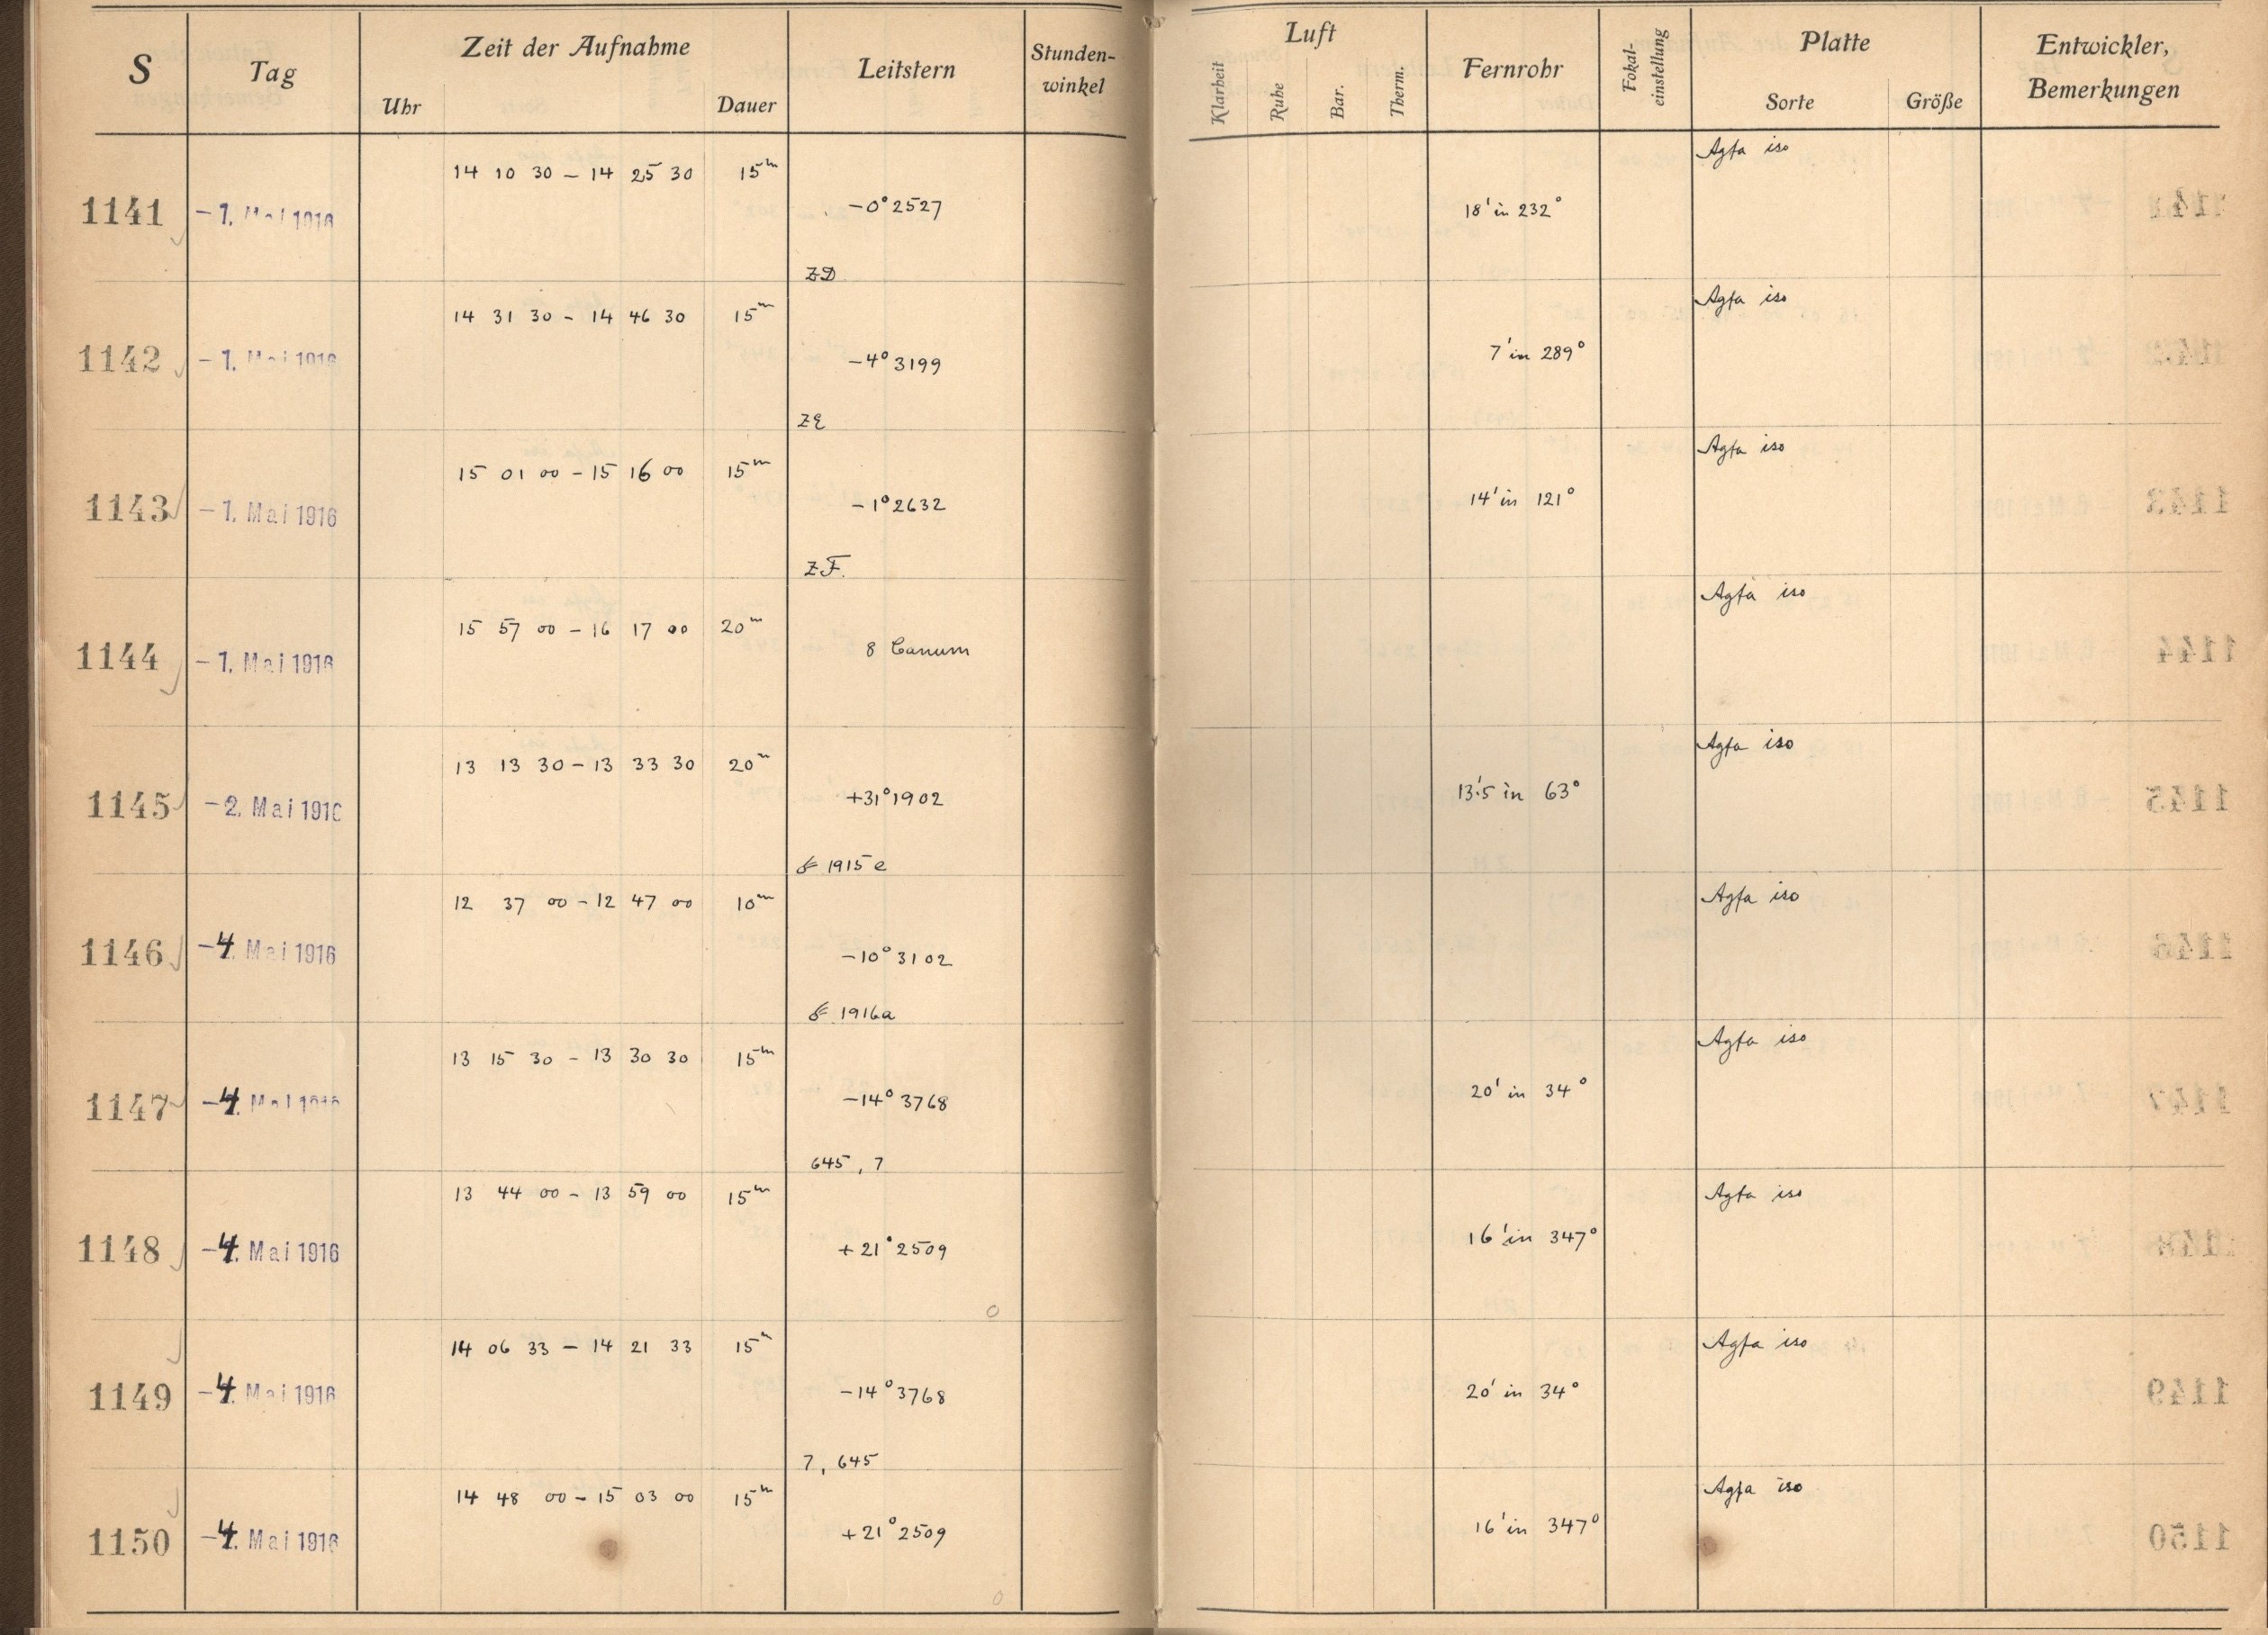 S Tag Zeit der Aufnahme Leitstern Stunden-winkel Luft Fernrohr Fokal-einstellung Platte Entwickler, Bemerkungen
Uhr Dauer Klarheit Ruhe Bar. Therm. Sorte Größe
14 10 30 – 14 25 30 15m Agfa iso
1141 –1. Mai 1916 –0° 2527 18' in 232°
ZD
14 31 30 – 14 46 30 15m Agfa iso
1142 –1. Mai 1916 –4° 3199 7' in 289°
ZE
15 01 00 – 15 16 00 15m Agfa iso
1143 –1. Mai 1916 –1° 2632 14' in 121°
ZF.
15 57 00 – 16 17 00 20m Agfa iso
1144 –1. Mai 1916 8 Canum
13 13 30 – 13 33 30 20m Agfa iso
1145 –2. Mai 1916 +31° 1902 13'.5 in 63°
1915 e
12 37 00 – 12 47 00 10m Agfa iso
1146 –4. Mai 1916 –10° 3102
1916a
13 15 30 – 13 30 30 15m Agfa iso
1147 –4. Mai 1916 –14° 3768 20' in 34°
645, 7
13 44 00 – 13 59 00 15m Agfa iso
1148 –4. Mai 1916 +21° 2509 16' in 347°
14 06 33 – 14 21 33 15m Agfa iso
1149 –4. Mai 1916 –14° 3768 20' in 34°
7, 645
14 48 00 – 15 03 00 15m Agfa iso
1150 –4. Mai 1916 +21° 2509 16' in 347°